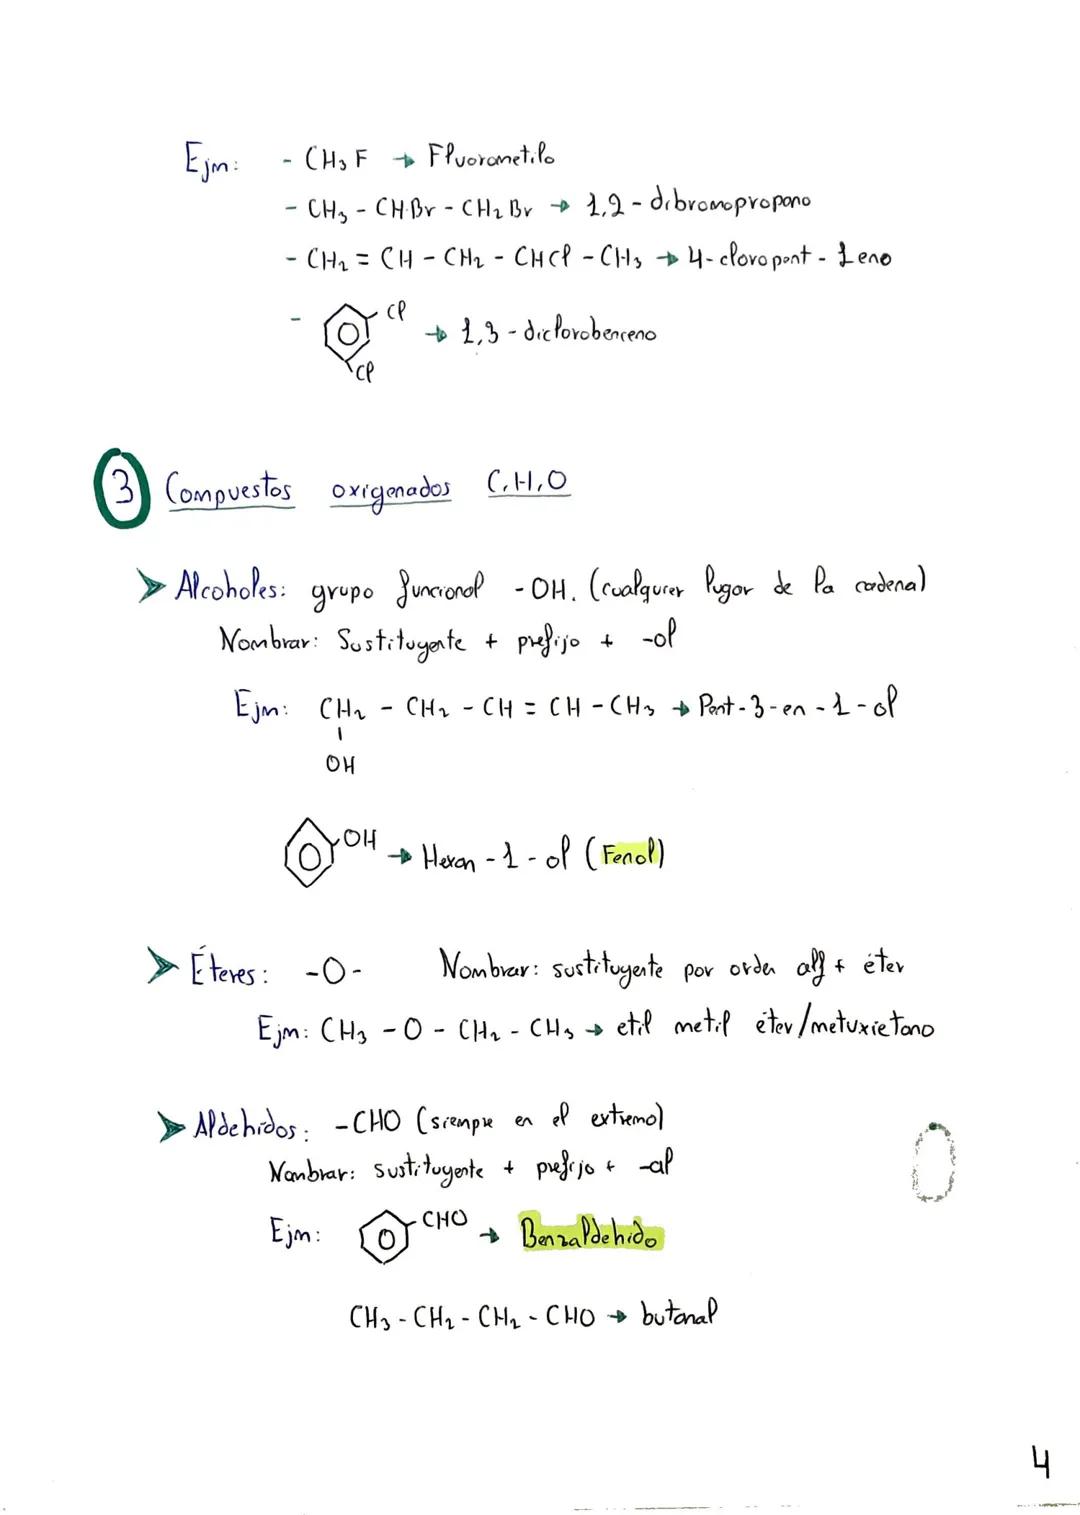 Ejm: - CH3 F → Fluorometilo
- CH3 - CHBr - CH2 Br → 1,2 - dibromopropano
- CH2 = CH - CH2 - CHCl - CH3 → 4-cloropent - 1 eno
- Cl → 1,3 - diclorobenceno
Cl
3 Compuestos oxigenados C,H,O
➤ Alcoholes: grupo funcional - OH. (cualquier lugar de la cadena)
Nombrar: Sustituyente + prefijo + -ol
Ejm: CH2 - CH2 - CH = CH - CH3 → Pent - 3 - en - 1 - ol
OH
OH → Hexan - 1 - ol (Fenol)
➤ Éteres: -O- Nombrar: sustituyente por orden alf + éter
Ejm: CH3 - O - CH2 - CH3 → etil metil éter/metuxietano
➤ Aldehidos: -CHO (siempre en el extremo)
Nombrar: sustituyente + prefijo + -al
Ejm: CHO → Benzaldehido
CH3 - CH2 - CH2 - CHO → butanal
4